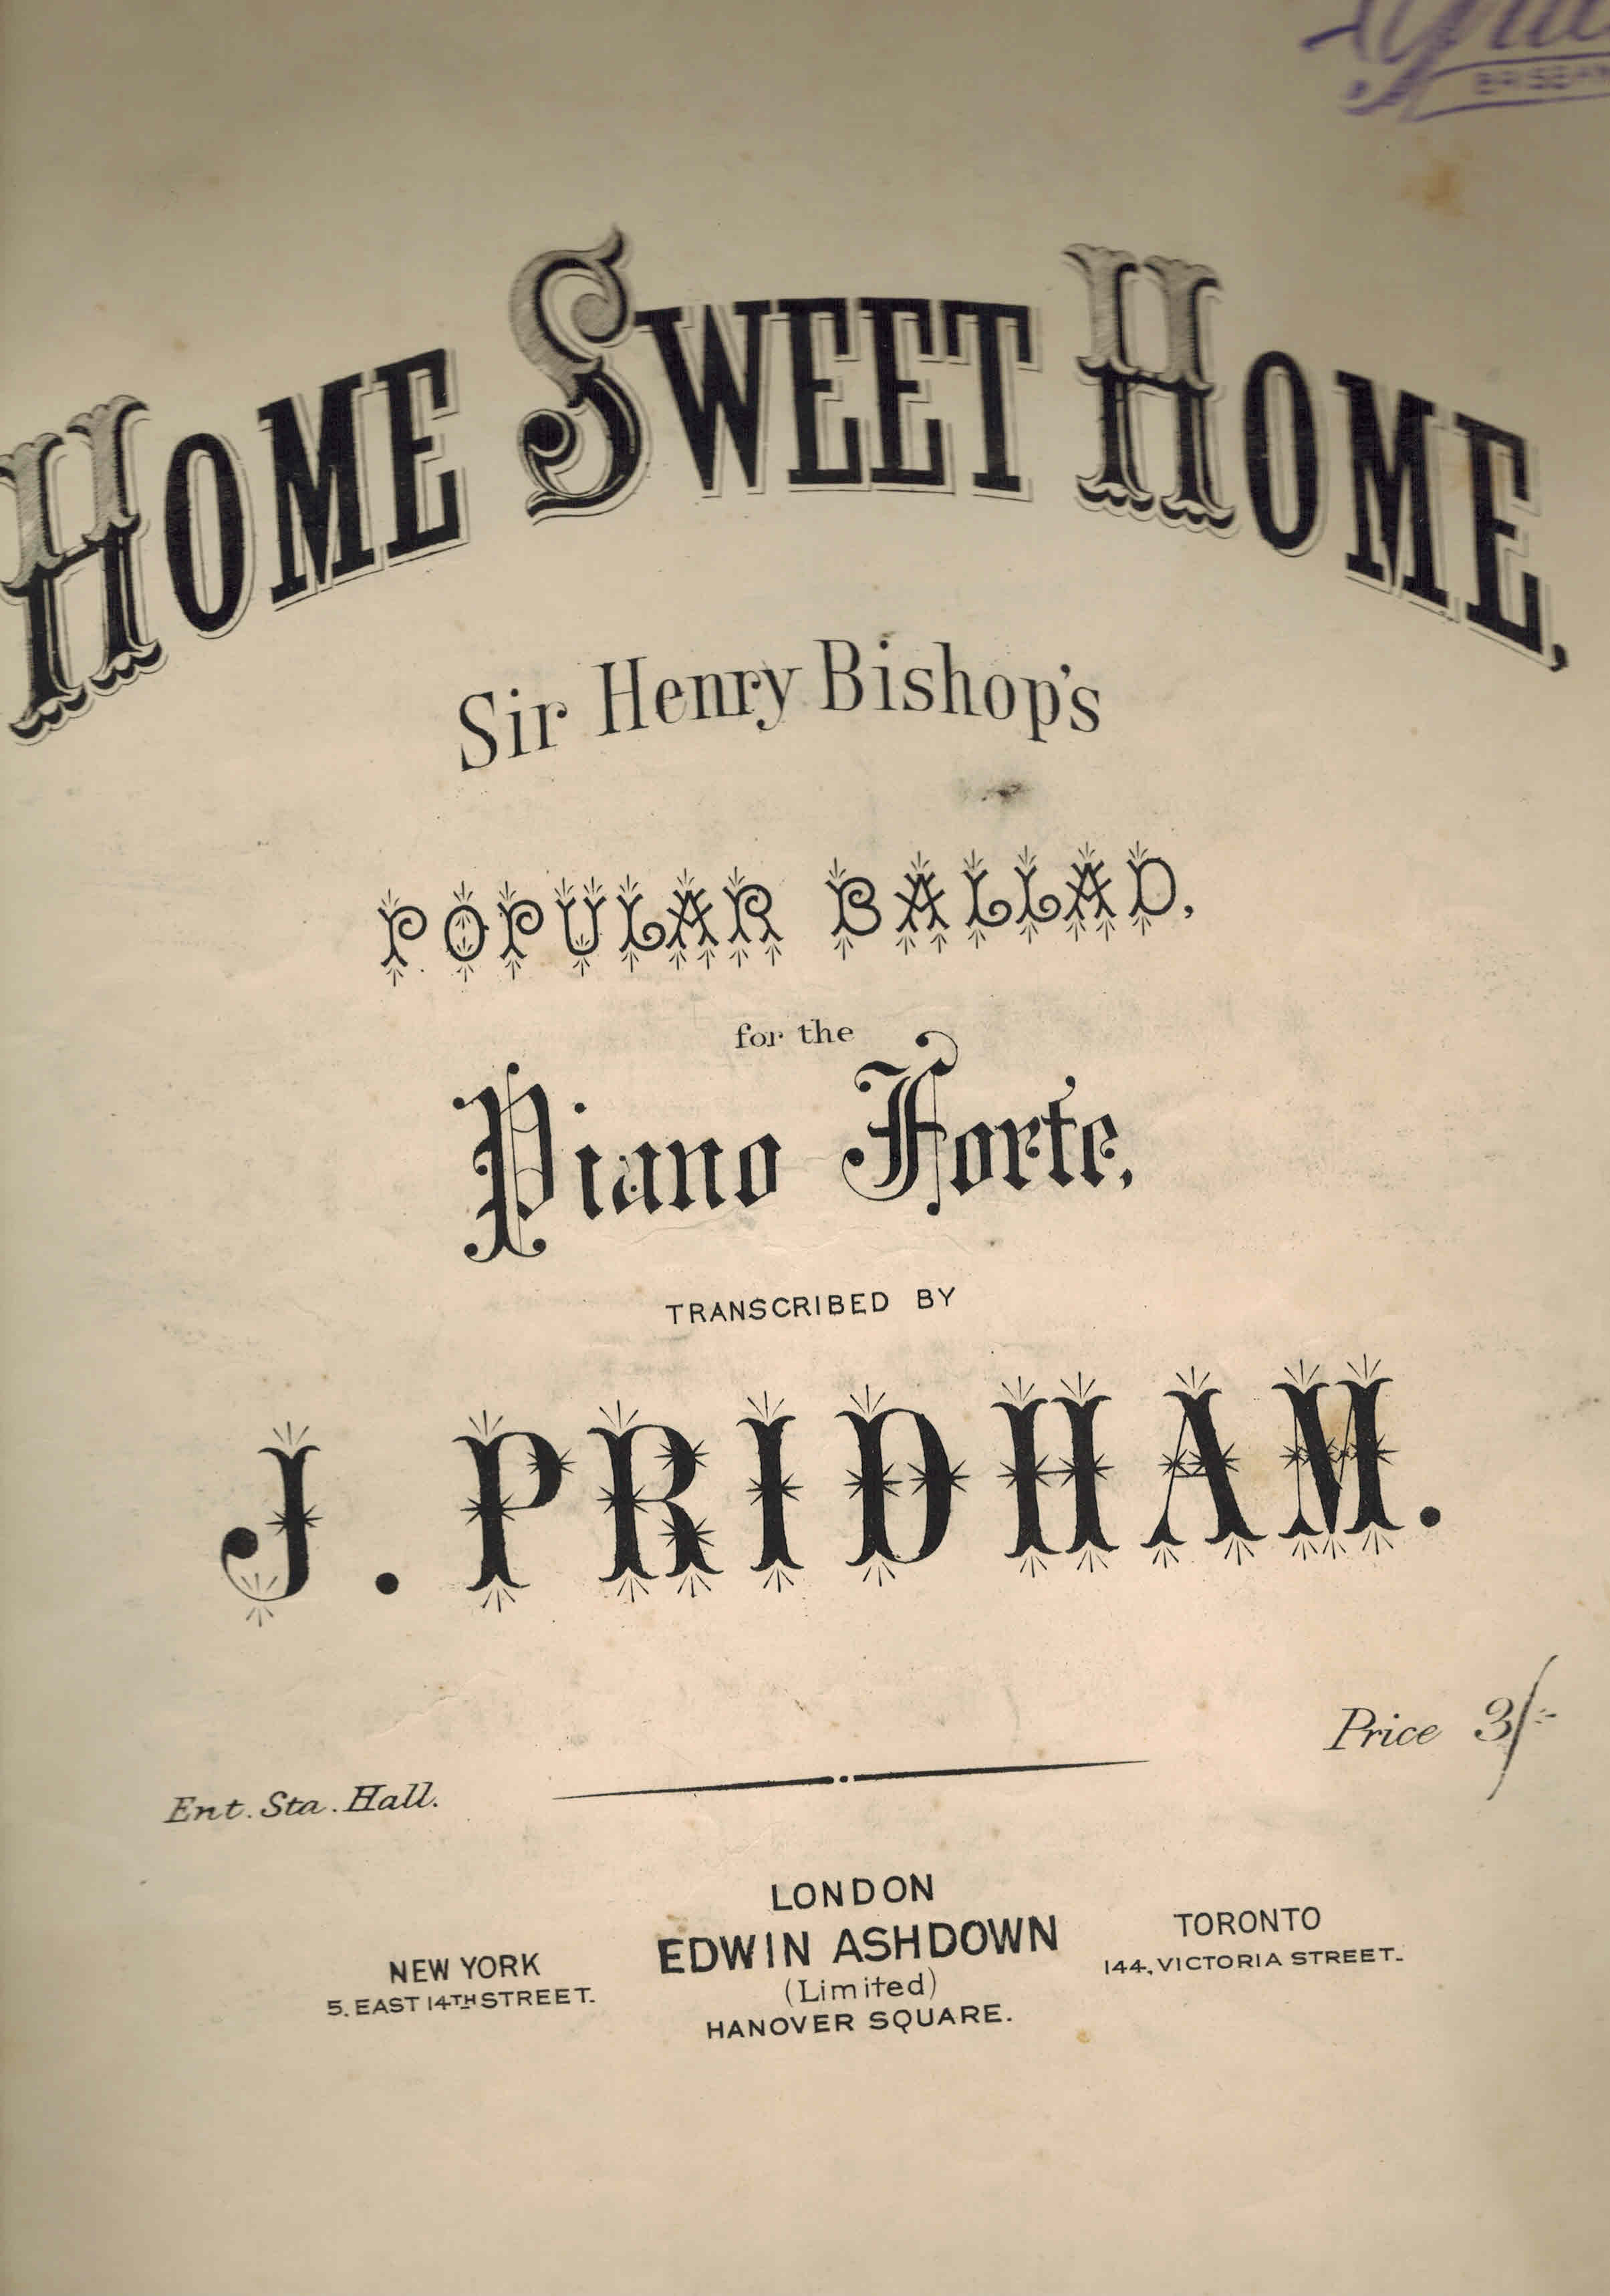 HOME SWEET HOME,
Sir Henry Bishop's
POPULAR BALLAD,
for the
Piano Forte,
TRANSCRIBED BY
J. PRIDHAM.
Price 3/-
Ent. Sta. Hall.
LONDON
EDWIN ASHDOWN
(Limited)
HANOVER SQUARE.
NEW YORK
5, EAST 14TH STREET.
TORONTO
144, VICTORIA STREET.